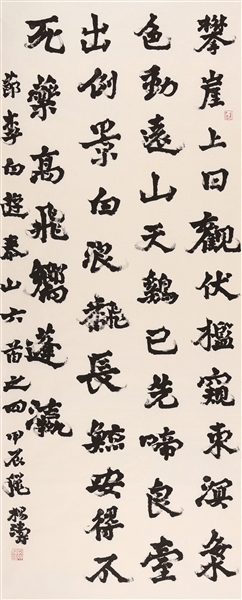 攀崖上日觀伏檻窺東溟海
色動遠山天鷄已先啼艮臺
出倒景白浪飜長鯨安得不
死藥高飛嚮蓬瀛
節李白遊泰山六首之四 甲辰龍 松濤